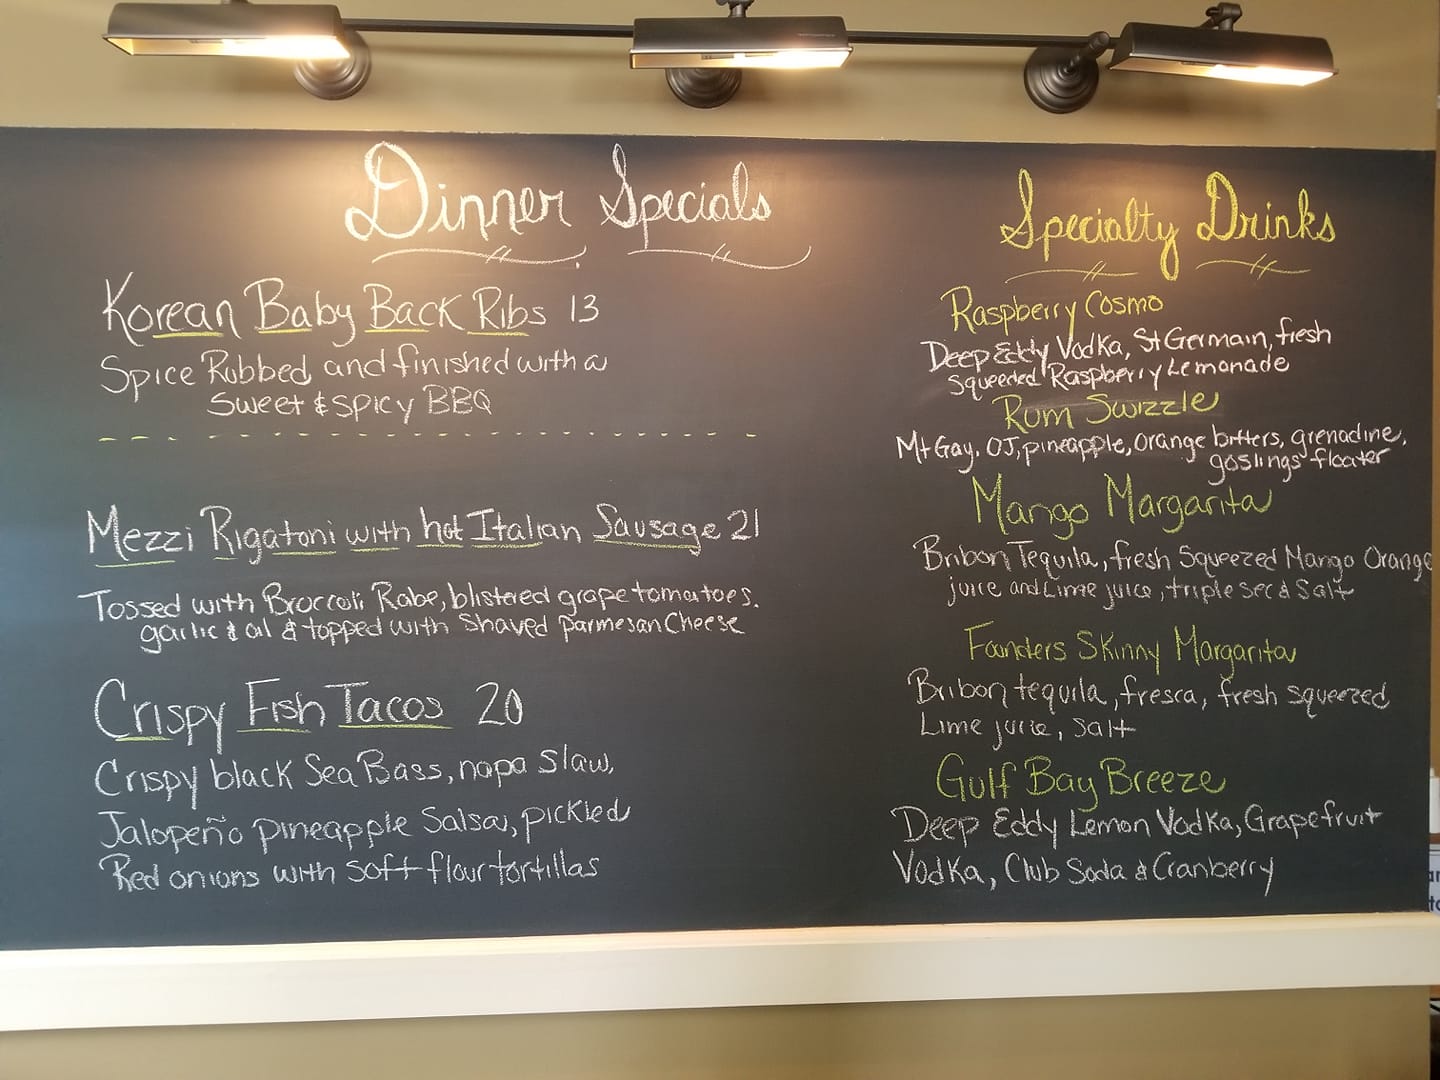 Dinner Specials
Korean Baby Back Ribs 13
Spice Rubbed and finished with a
Sweet & spicy BBQ
Mezzi Rigatoni with hot Italian Sausage 21
Tossed with Broccoli Rabe, blistered grape tomatoes,
garlic & oil & topped with Shaved parmesan Cheese
Crispy Fish Tacos 20
Crispy black Sea Bass, napa slaw,
Jalopeño pineapple Salsa, pickled
Red onions with soft flour tortillas
Specialty Drinks
Raspberry Cosmo
Deep Eddy Vodka, St Germain, fresh
squeezed Raspberry Lemonade
Rum Swizzle
Mt Gay, OJ, pineapple, orange bitters, grenadine,
goslings floater
Mango Margarita
Bribon Tequila, fresh Squeezed Mango Orange
juice and Lime juice, triple sec & Salt
Founders Skinny Margarita
Bribon tequila, fresca, fresh squeezed
Lime juice, Salt
Gulf Bay Breeze
Deep Eddy Lemon Vodka, Grapefruit
Vodka, Club Soda & Cranberry